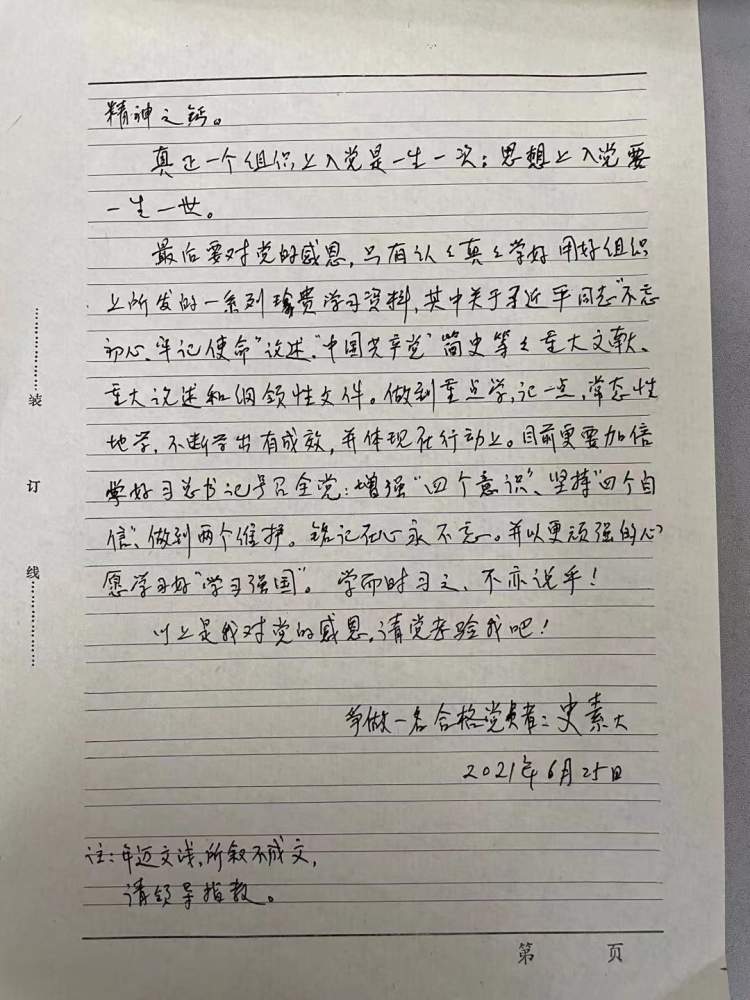 精神之钙。
真正一个组织上入党是一生一次；思想上入党要
一生一世。
最后要对党的感恩，只有认认真真学好用好组织
上所发的一系列珍贵学习资料，其中关于习近平同志“不忘
初心、牢记使命”论述、“中国共产党”简史等等重大文献、
重大论述和纲领性文件。做到重点学，记一点，常态性
地学，不断学出有成效，并体现在行动上。目前更要加倍
学好习总书记号召全党：增强“四个意识”、坚持“四个自
信”、做到两个维护。铭记在心永不忘。并以更顽强的心
愿学习好“学习强国”。学而时习之、不亦说乎！
以上是我对党的感恩，请党考验我吧！
争做一名合格党员者：史素大
2021年6月25日
注：年迈文浅，所叙不成文，
请领导指教。
装
订
线
第 页